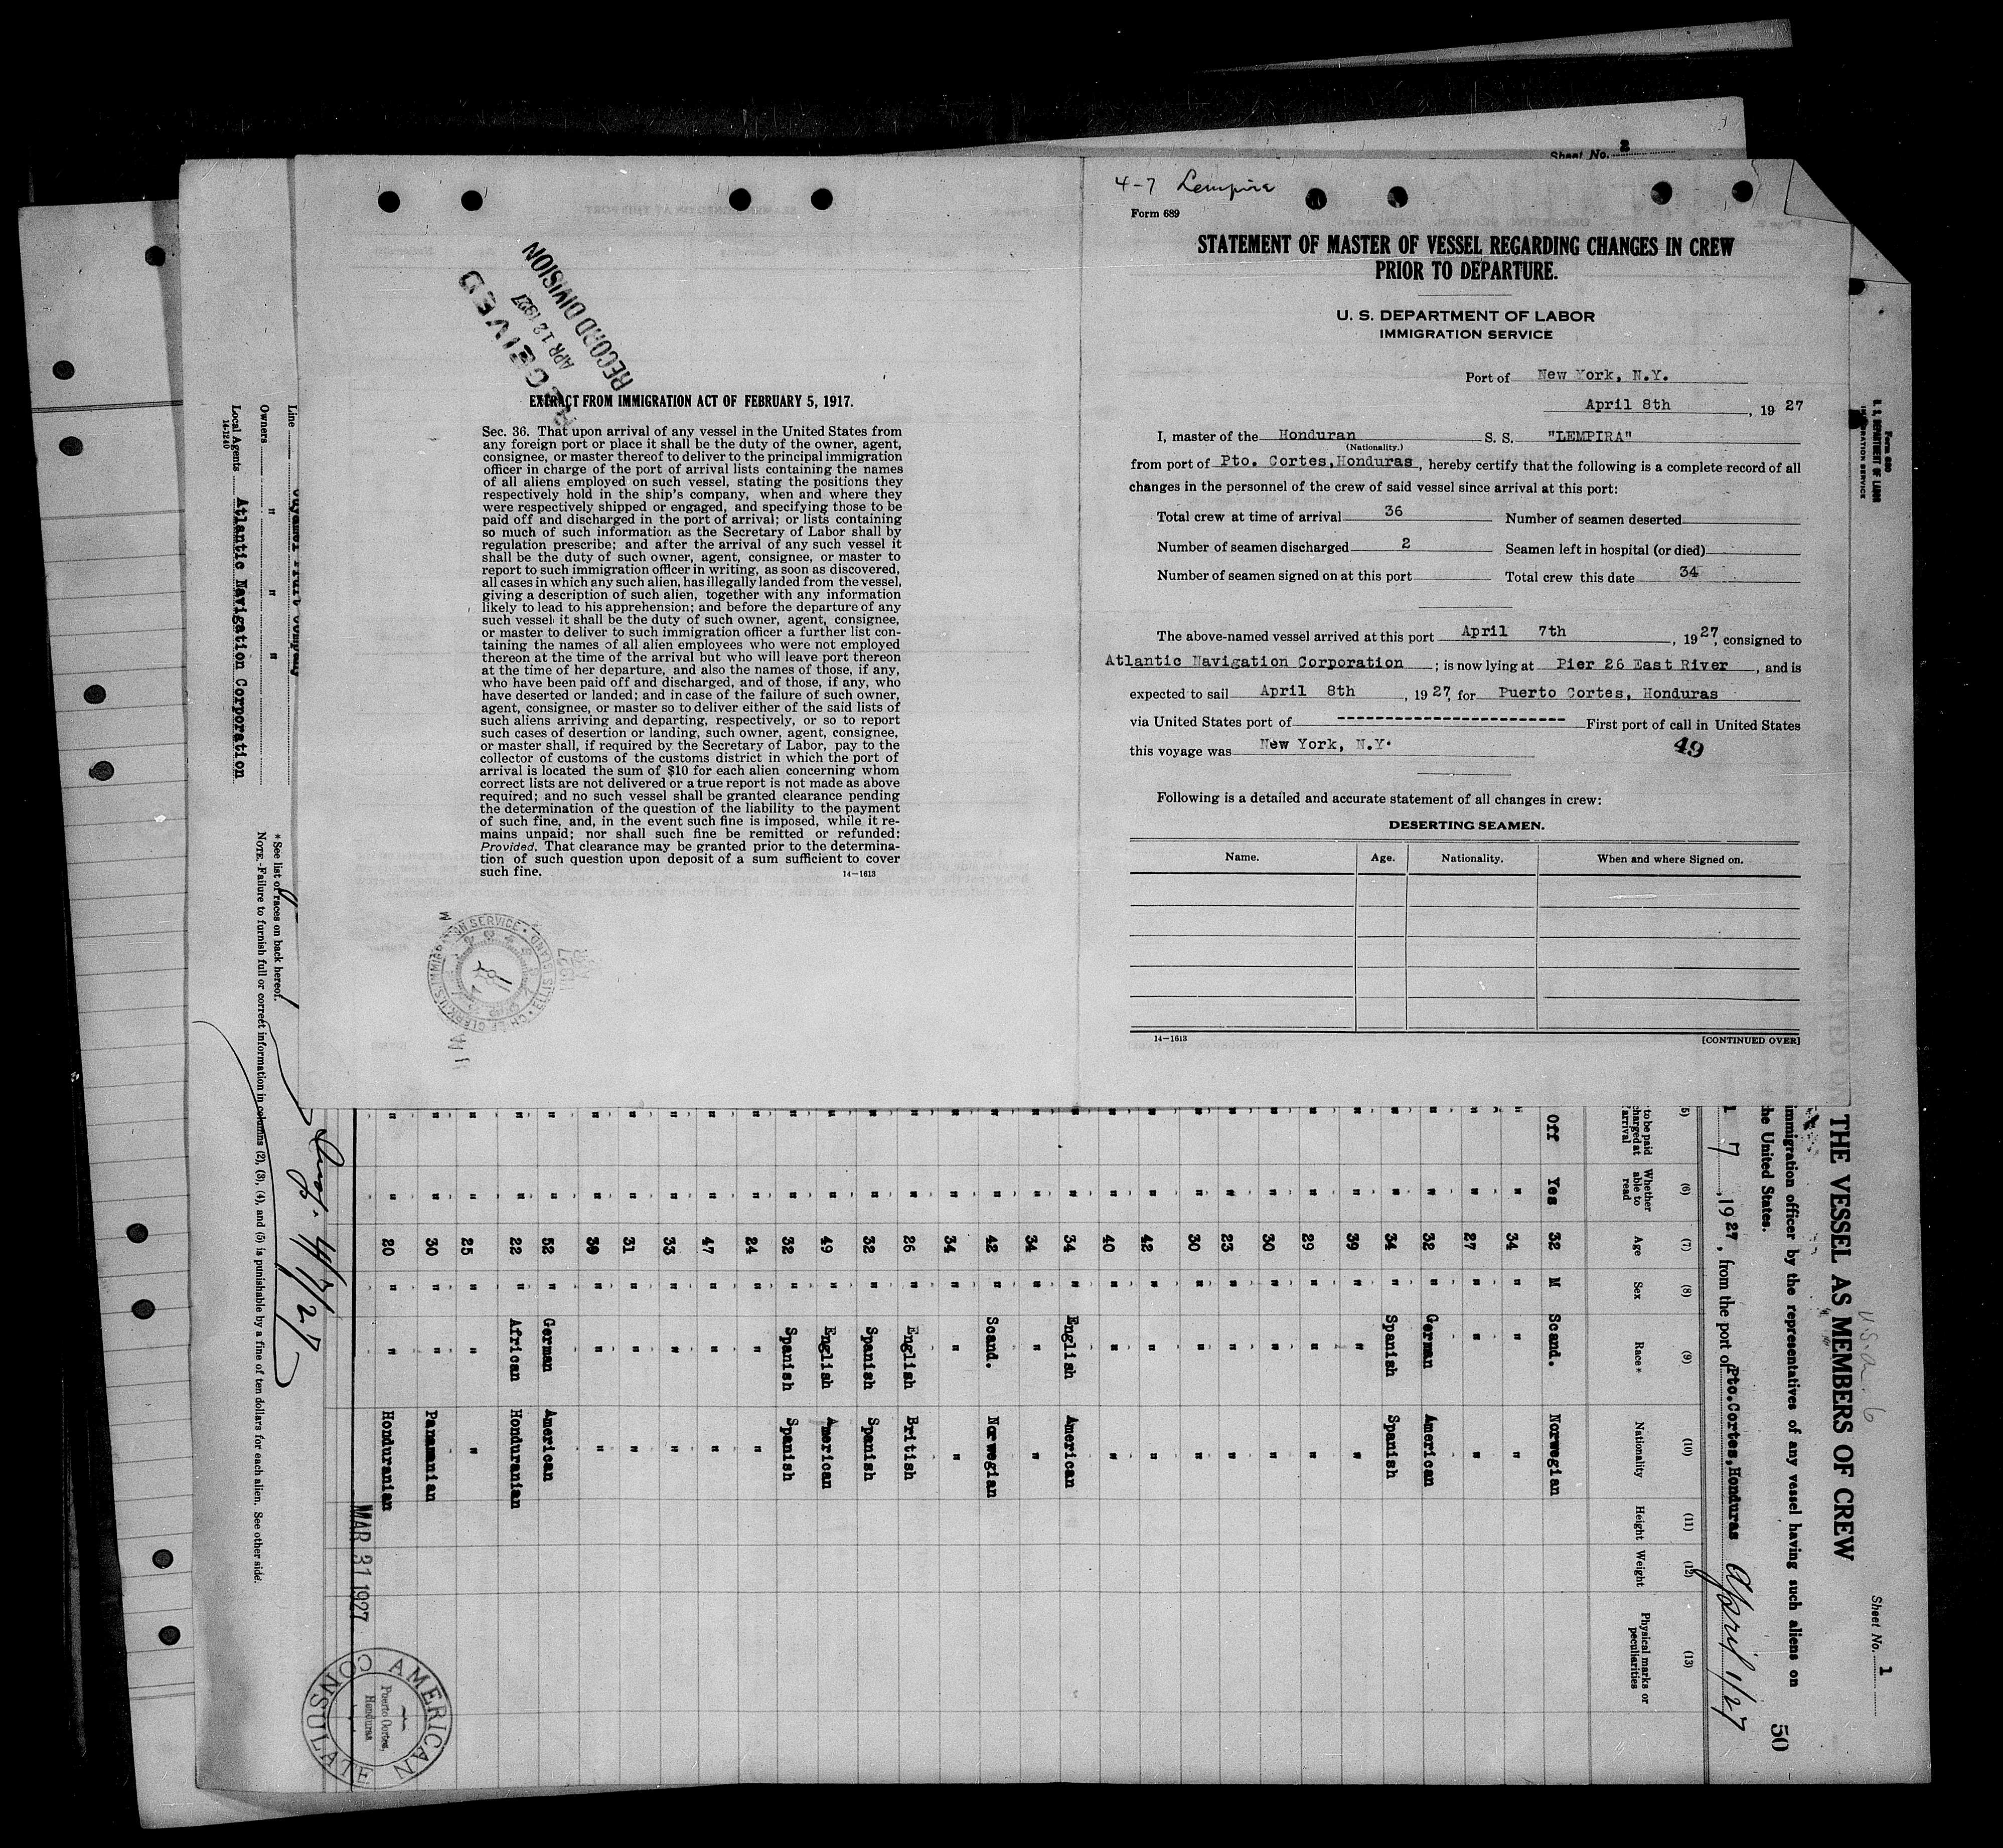 Sheet No. 2
4-7 Lempira
Form 689
STATEMENT OF MASTER OF VESSEL REGARDING CHANGES IN CREW
PRIOR TO DEPARTURE.
U. S. DEPARTMENT OF LABOR
IMMIGRATION SERVICE
Port of New York, N.Y.
April 8th, 1927
I, master of the Honduran S. S. "LEMPIRA"
(Nationality.)
from port of Pto. Cortes, Honduras, hereby certify that the following is a complete record of all
changes in the personnel of the crew of said vessel since arrival at this port:
Total crew at time of arrival 36 Number of seamen deserted
Number of seamen discharged 2 Seamen left in hospital (or died)
Number of seamen signed on at this port Total crew this date 34
The above-named vessel arrived at this port April 7th, 1927, consigned to
Atlantic Navigation Corporation; is now lying at Pier 26 East River, and is
expected to sail April 8th, 1927, for Puerto Cortes, Honduras
via United States port of ------------------------ First port of call in United States
this voyage was New York, N.Y.
49
Following is a detailed and accurate statement of all changes in crew:
DESERTING SEAMEN.
Name. Age. Nationality. When and where Signed on.
14-1613 [CONTINUED OVER]
RECEIVED
APR 12 1927
RECORD DIVISION
EXTRACT FROM IMMIGRATION ACT OF FEBRUARY 5, 1917.
Sec. 36. That upon arrival of any vessel in the United States from
any foreign port or place it shall be the duty of the owner, agent,
consignee, or master thereof to deliver to the principal immigration
officer in charge of the port of arrival lists containing the names
of all aliens employed on such vessel, stating the positions they
respectively hold in the ship's company, when and where they
were respectively shipped or engaged, and specifying those to be
paid off and discharged in the port of arrival; or lists containing
so much of such information as the Secretary of Labor shall by
regulation prescribe; and after the arrival of any such vessel it
shall be the duty of such owner, agent, consignee, or master to
report to such immigration officer in writing, as soon as discovered,
all cases in which any such alien, has illegally landed from the vessel,
giving a description of such alien, together with any information
likely to lead to his apprehension; and before the departure of any
such vessel it shall be the duty of such owner, agent, consignee,
or master to deliver to such immigration officer a further list con-
taining the names of all alien employees who were not employed
thereon at the time of the arrival but who will leave port thereon
at the time of her departure, and also the names of those, if any,
who have been paid off and discharged, and of those, if any, who
have deserted or landed; and in case of the failure of such owner,
agent, consignee, or master so to deliver either of the said lists of
such aliens arriving and departing, respectively, or so to report
such cases of desertion or landing, such owner, agent, consignee,
or master shall, if required by the Secretary of Labor, pay to the
collector of customs of the customs district in which the port of
arrival is located the sum of $10 for each alien concerning whom
correct lists are not delivered or a true report is not made as above
required; and no such vessel shall be granted clearance pending
the determination of the question of the liability to the payment
of such fine, and, in the event such fine is imposed, while it re-
mains unpaid; nor shall such fine be remitted or refunded:
Provided. That clearance may be granted prior to the determina-
tion of such question upon deposit of a sum sufficient to cover
such fine.
14-1613
Form 689
U. S. DEPARTMENT OF LABOR
IMMIGRATION SERVICE
Sheet No. 1
50
THE VESSEL AS MEMBERS OF CREW
immigration officer by the representatives of any vessel having such aliens on
the United States.
7, 1927, from the port of Pto.Cortes,Honduras April 1/27
(5) (6) (7) (8) (9) (10) (11) (12) (13)
to be paid
charged at
arrival
Whether
able to
read
Age Sex Race* Nationality Height Weight Physical marks or
peculiarities
Off Yes 32 M Scand. Norwegian
" " 34 " " "
" " 27 " " "
" " 32 " German American
" " 34 " Spanish Spanish
" " 39 " " "
" " 29 " " "
" " 30 " " "
" " 23 " " "
" " 30 " " "
" " 42 " " "
" " 40 " " "
" " 34 " English American
" " 34 " " "
" " 42 " Scand. Norwegian
" " 34 " " "
" " 26 " English British
" " 32 " Spanish Spanish
" " 49 " English American
" " 32 " Spanish Spanish
" " 24 " " "
" " 47 " " "
" " 33 " " "
" " 31 " " "
" " 30 " " "
" " 52 " German American
" " 22 " African Honduranian
" " 25 " " "
" " 30 " " Panamanian
" " 20 " " Honduranian
MAR 31 1927
AMERICAN CONSULATE
Puerto Cortes,
Honduras
Line Cuyamel Fruit Company
Owners " " "
Local Agents Atlantic Navigation Corporation
14-1240
* See list of races on back hereof.
NOTE.-Failure to furnish full or correct information in columns (2), (3), (4), and (5) is punishable by a fine of ten dollars for each alien. See other side.